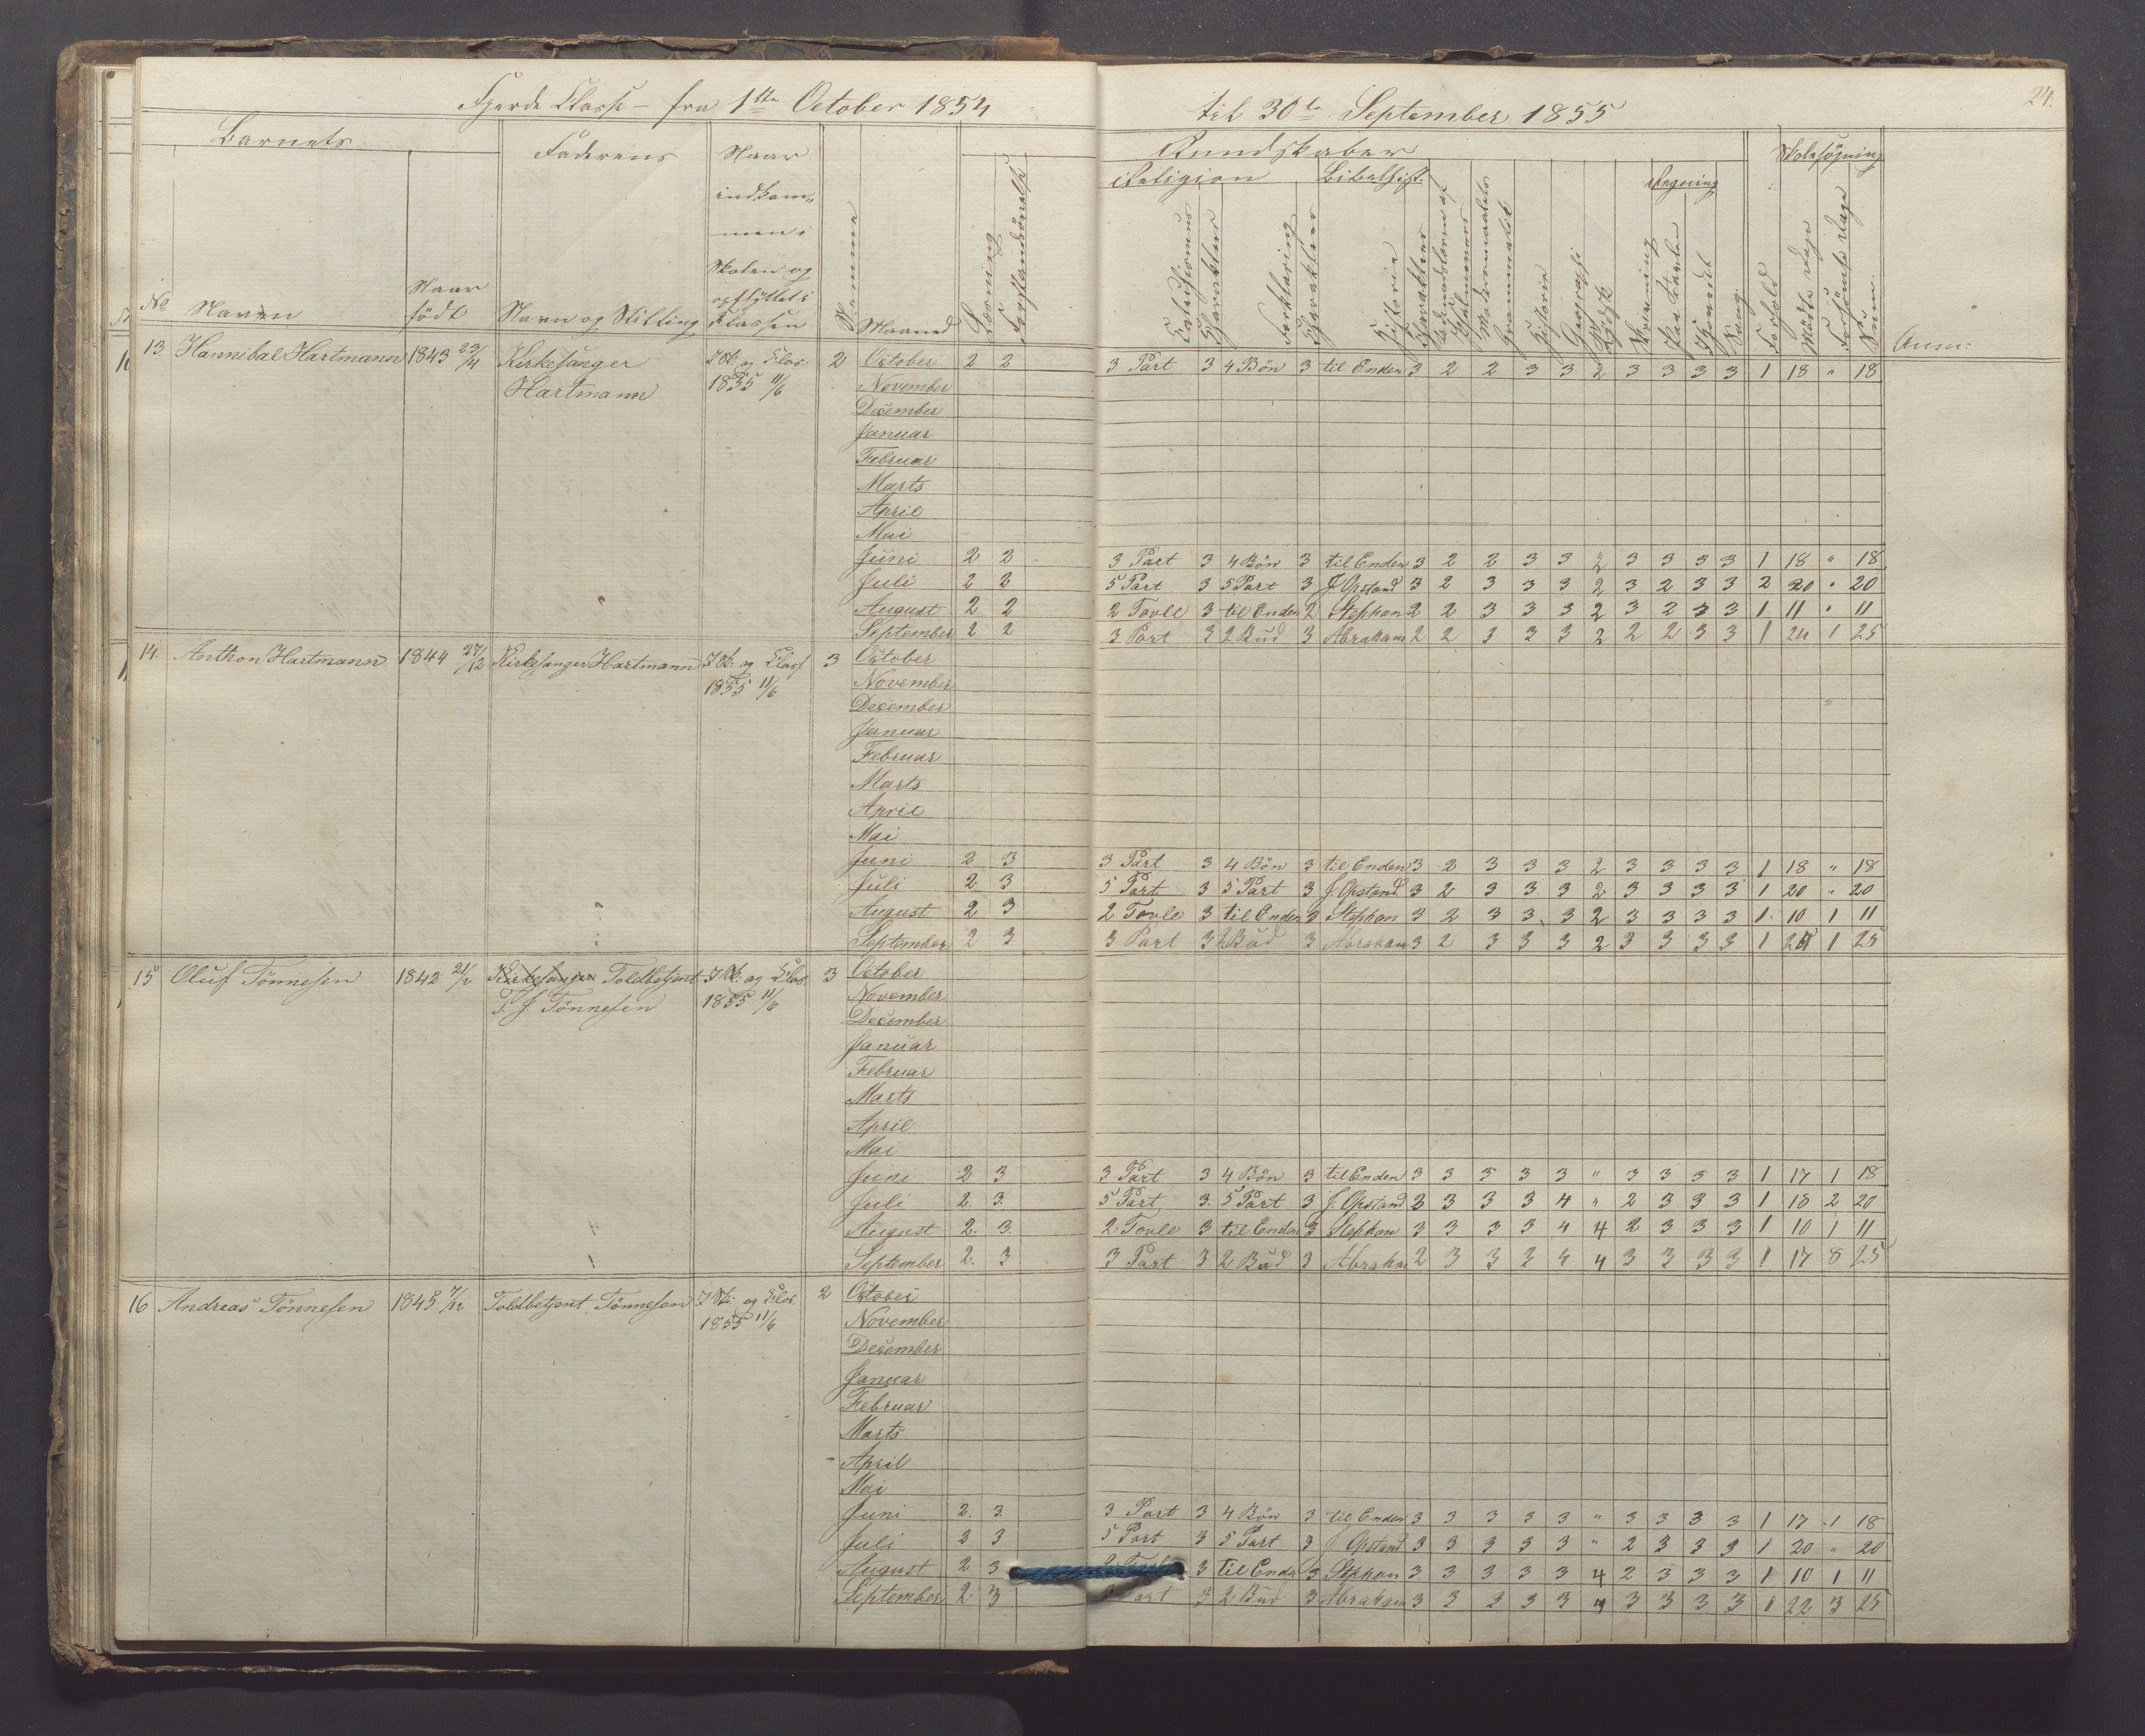 Fjerde Classe – fra 1ste October 1854
til 30te September 1855
24.
Barnets
Faderens
Naar indkommen i Skolen og opflyttet i Klassen
Kundskaber
Religion
Bibelhist.
Regning
Skolesögning
No
Navn
Naar födt
Navn og Stilling
Maaned
Anm:
13. Hannibal Hartmann 1843 23/4 Kirkesanger Hartmann I Sk. og Clas. 1855 11/6 2
October 2 2 3 Part 3 4 Bön 3 til Enden 3 2 2 3 3 2 3 3 3 3 1 18 " 18
November
December
Januar
Februar
Marts
April
Mai
Juni 2 2 3 Part 3 4 Bön 3 til Enden 3 2 2 3 3 2 3 3 3 3 1 18 " 18
Juli 2 2 5 Part 3 5 Part 3 J. Opstand 3 2 3 3 3 2 3 2 3 3 2 20 " 20
August 2 2 2 Tavle 3 til Enden 2 Stephan 2 2 3 3 3 2 3 2 3 3 1 11 " 11
September 2 2 3 Part 3 2 Bud 3 Abraham 2 2 3 3 3 2 2 2 3 3 1 24 1 25
14. Anthon Hartmann 1844 27/12 Kirkesanger Hartmann I Sk. og Class 1855 11/6 3
October
November
December
Januar
Februar
Marts
April
Mai
Juni 2 3 3 Part 3 4 Bön 3 til Enden 3 2 3 3 3 2 3 3 3 3 1 18 " 18
Juli 2 3 5 Part 3 5 Part 3 J. Opstand 3 2 3 3 3 2 3 3 3 3 1 20 " 20
August 2 3 2 Tavle 3 til Enden 3 Stephan 3 2 3 3 3 2 3 3 3 3 1 10 1 11
September 2 3 3 Part 3 2 Bud 3 Abraham 3 2 3 3 3 2 3 3 3 3 1 24 1 25
15 Oluf Tönnesen 1842 21/2 Kirkesanger Toldbetjent T. J. Tönnesen I Sk. og Clas. 1855 11/6 3
October
November
December
Januar
Februar
Marts
April
Mai
Juni 2 3 3 Part 3 4 Bön 3 til Enden 3 3 3 3 3 " 3 3 3 3 1 17 1 18
Juli 2. 3. 5 Part 3. 5 Part 3 J. Opstand 3 3 3 3 4 " 2 3 3 3 1 18 2 20
August 2. 3. 2 Tavle 3 til Enden 3 Stephan 3 3 3 3 4 4 2 3 3 3 1 10 1 11
September 2. 3 3 Part 3 2 Bud 3 Abraham 2 3 3 3 4 4 3 3 3 3 1 17 8 25
16 Andreas Tönnesen 1845 7/12 Toldbetjent Tönnesen I Sk. og Clas. 1855 11/6 2
October
November
December
Januar
Februar
Marts
April
Mai
Juni 2. 3. 3 Part 3 4 Bön 3 til Enden 3 3 3 3 3 " 3 3 3 3 1 17 1 18
Juli 2 3 5 Part 3 5 Part 3 J Opstand 3 3 3 3 3 " 2 3 3 3 1 20 " 20
August 2 3 3 til Ende 3 Stephan 3 3 3 3 3 4 2 3 3 3 1 10 1 11
September 2 3 Part 3 2 Bud 3 Abraham 3 3 2 3 3 4 3 3 3 3 1 22 3 25